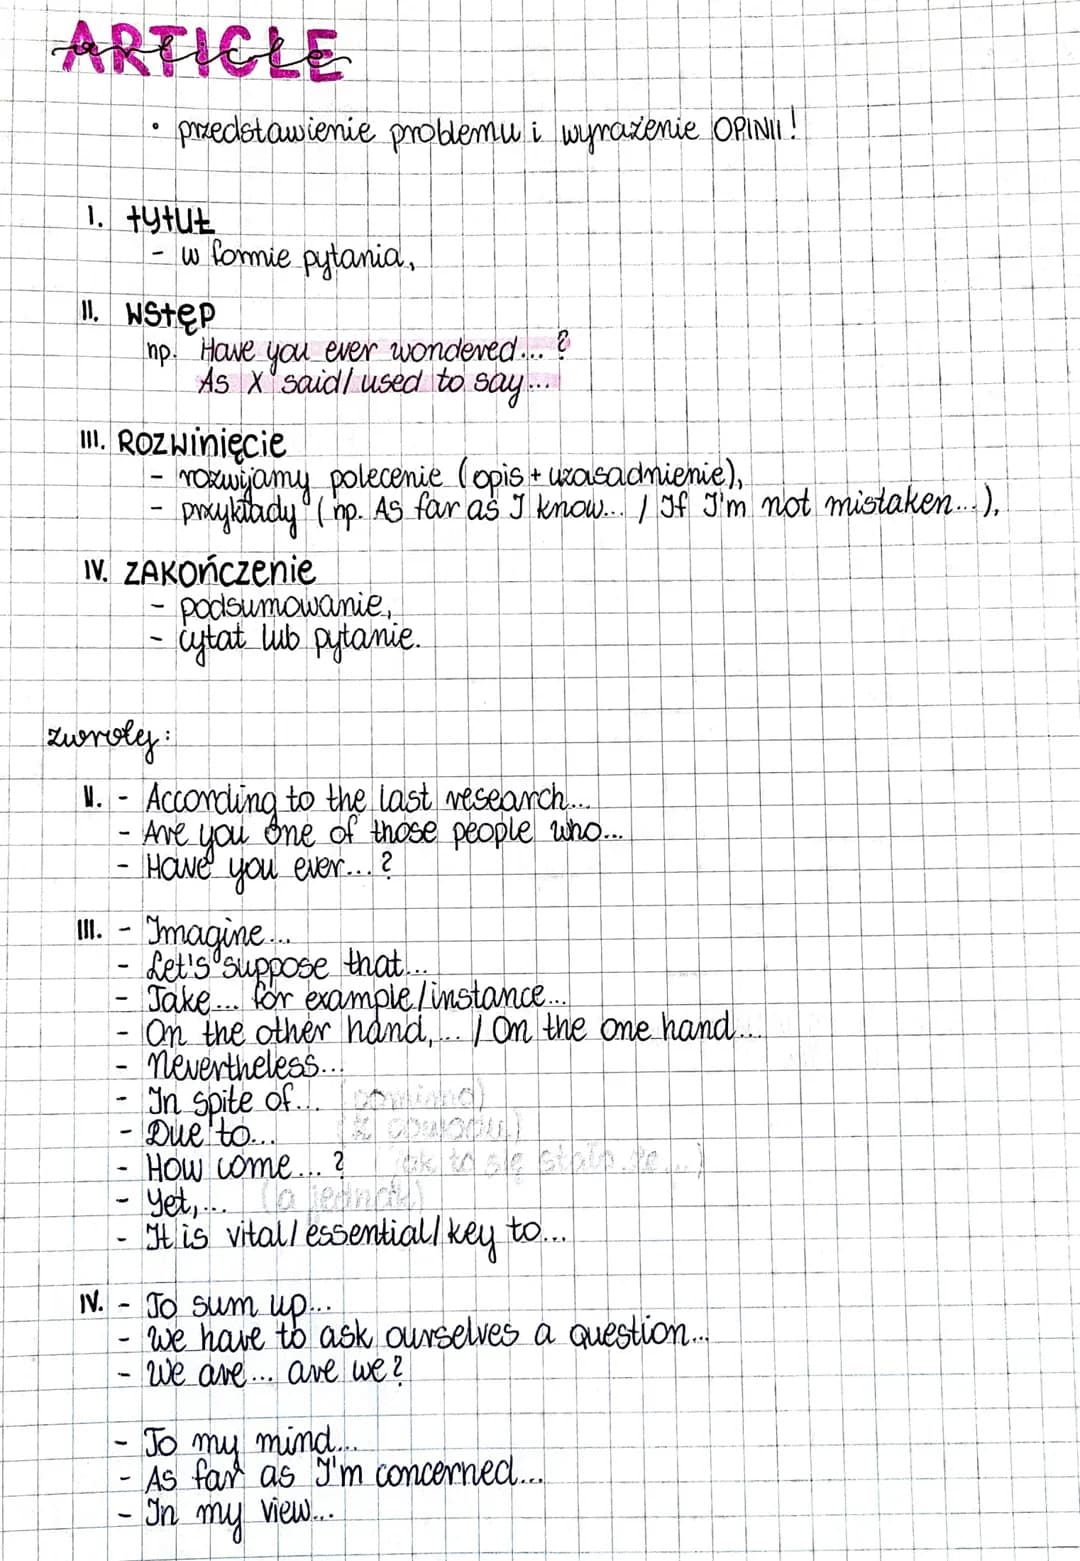 ARTICLE
article
• przedstawienie problemu i wyrażenie OPINII!
I. tytuł
- w formie pytania,
II. wstęp
np. Have you ever wondered...?
As X said/used to say...
III. Rozwinięcie
- rozwijamy polecenie (opis + uzasadnienie),
- przykłady (np. As far as I know... / If I'm not mistaken...),
IV. ZAKończenie
- podsumowanie,
- cytat lub pytanie.
zwroty:
II. - According to the last research...
- Are you one of those people who...
- Have you ever...?
III. - Imagine...
- Let's suppose that...
- Take... for example/instance...
- On the other hand,... / On the one hand...
- Nevertheless...
- In spite of... (pomimo)
- Due to... (z powodu)
- How come...? (jak to się stało że...)
- Yet,... (a jednak)
- It is vital/essential/key to...
IV. - To sum up...
- We have to ask ourselves a question...
- We are... are we?
- To my mind...
- As far as I'm concerned...
- In my view...